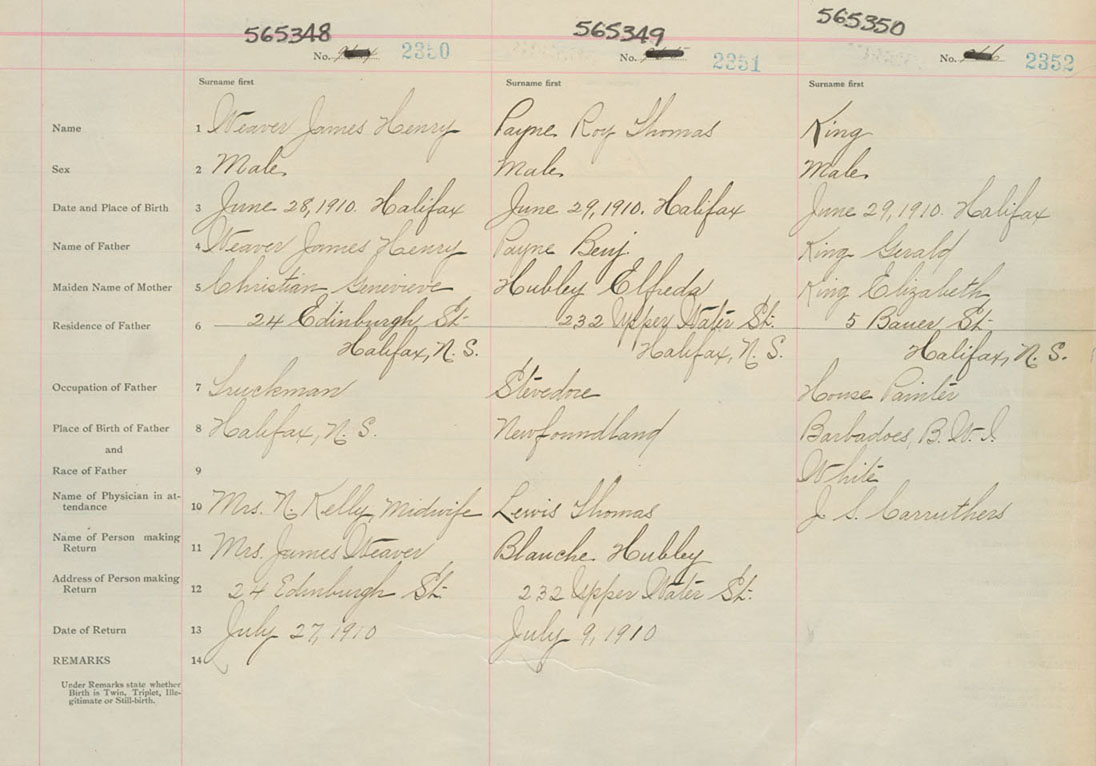 565348 565349 565350
No. 2350 No. 2351 No. 2352
Surname first Surname first Surname first
Name 1 Weaver James Henry Payne Roy Thomas King
Sex 2 Male Male Male
Date and Place of Birth 3 June 28, 1910. Halifax June 29, 1910. Halifax June 29, 1910. Halifax
Name of Father 4 Weaver James Henry Payne Benj King Gerald
Maiden Name of Mother 5 Christian Genevieve Hubley Elfreda King Elizabeth
Residence of Father 6 24 Edinburgh St. 232 Upper Water St. 5 Bauer St.
Halifax, N. S. Halifax, N. S. Halifax, N. S.
Occupation of Father 7 Truckman Stevedore House Painter
Place of Birth of Father 8 Halifax, N. S. Newfoundland Barbadoes, B. W. I.
and
Race of Father 9 White
Name of Physician in at-
tendance 10 Mrs. N. Kelly Midwife Lewis Thomas J. S. Carruthers
Name of Person making
Return 11 Mrs. James Weaver Blanche Hubley
Address of Person making
Return 12 24 Edinburgh St. 232 Upper Water St.
Date of Return 13 July 27, 1910 July 9, 1910
REMARKS 14
Under Remarks state whether
Birth is Twin, Triplet, Ille-
gitimate or Still-birth.